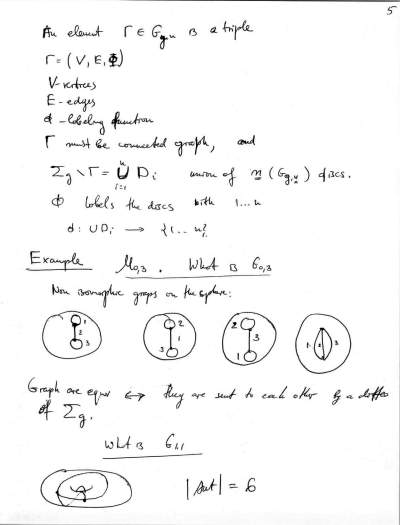 5
An element Γ ∈ G_{g,n} is a triple
Γ = (V, E, Φ)
V - vertices
E - edges
ϕ - labeling function
Γ must be connected graph, and
Σ_g \ Γ = ⋃_{i=1}^{n} D_i union of n (G_{g,n}) discs.
ϕ labels the discs with 1...n
ϕ: ∪D_i → {1...n}.
Example M_{0,3}. What is G_{0,3}
Non isomorphic graphs on the sphere:
1 2 3 2 1 3 2 3 1 1 2 3
Graph are equiv ⟷ they are sent to each other by a diffeo
of Σ_g.
What is G_{1,1}
|Aut| = 6